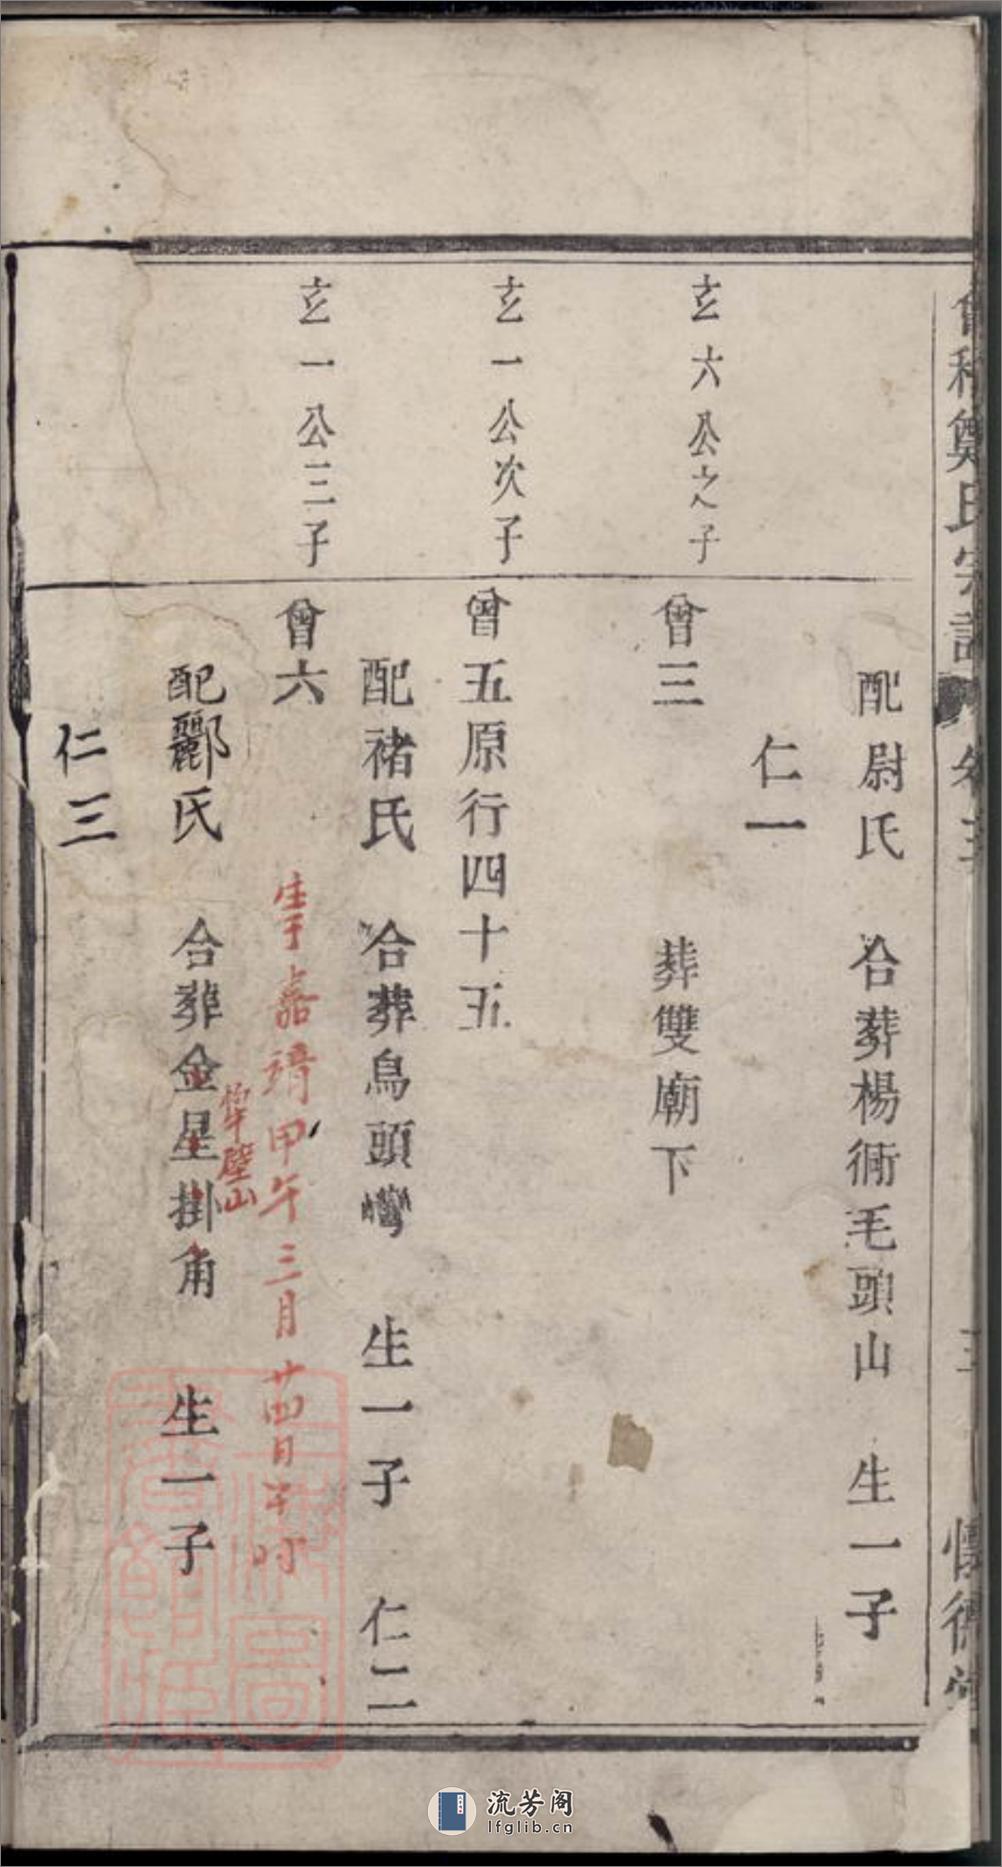 會稽鄭氏宗譜
卷三
三
懷德堂
配尉氏 合葬楊衖毛頭山 生一子
仁一
玄六公之子
曾三 葬雙廟下
玄一公次子
曾五原行四十五
配禇氏 合葬烏頭灣 生一子 仁二
玄一公三子
曾六
生于嘉靖甲午三月廿四日半時
璧山
配酈氏 合葬金星掛角 生一子
仁三
流芳阁
lfglib.cn